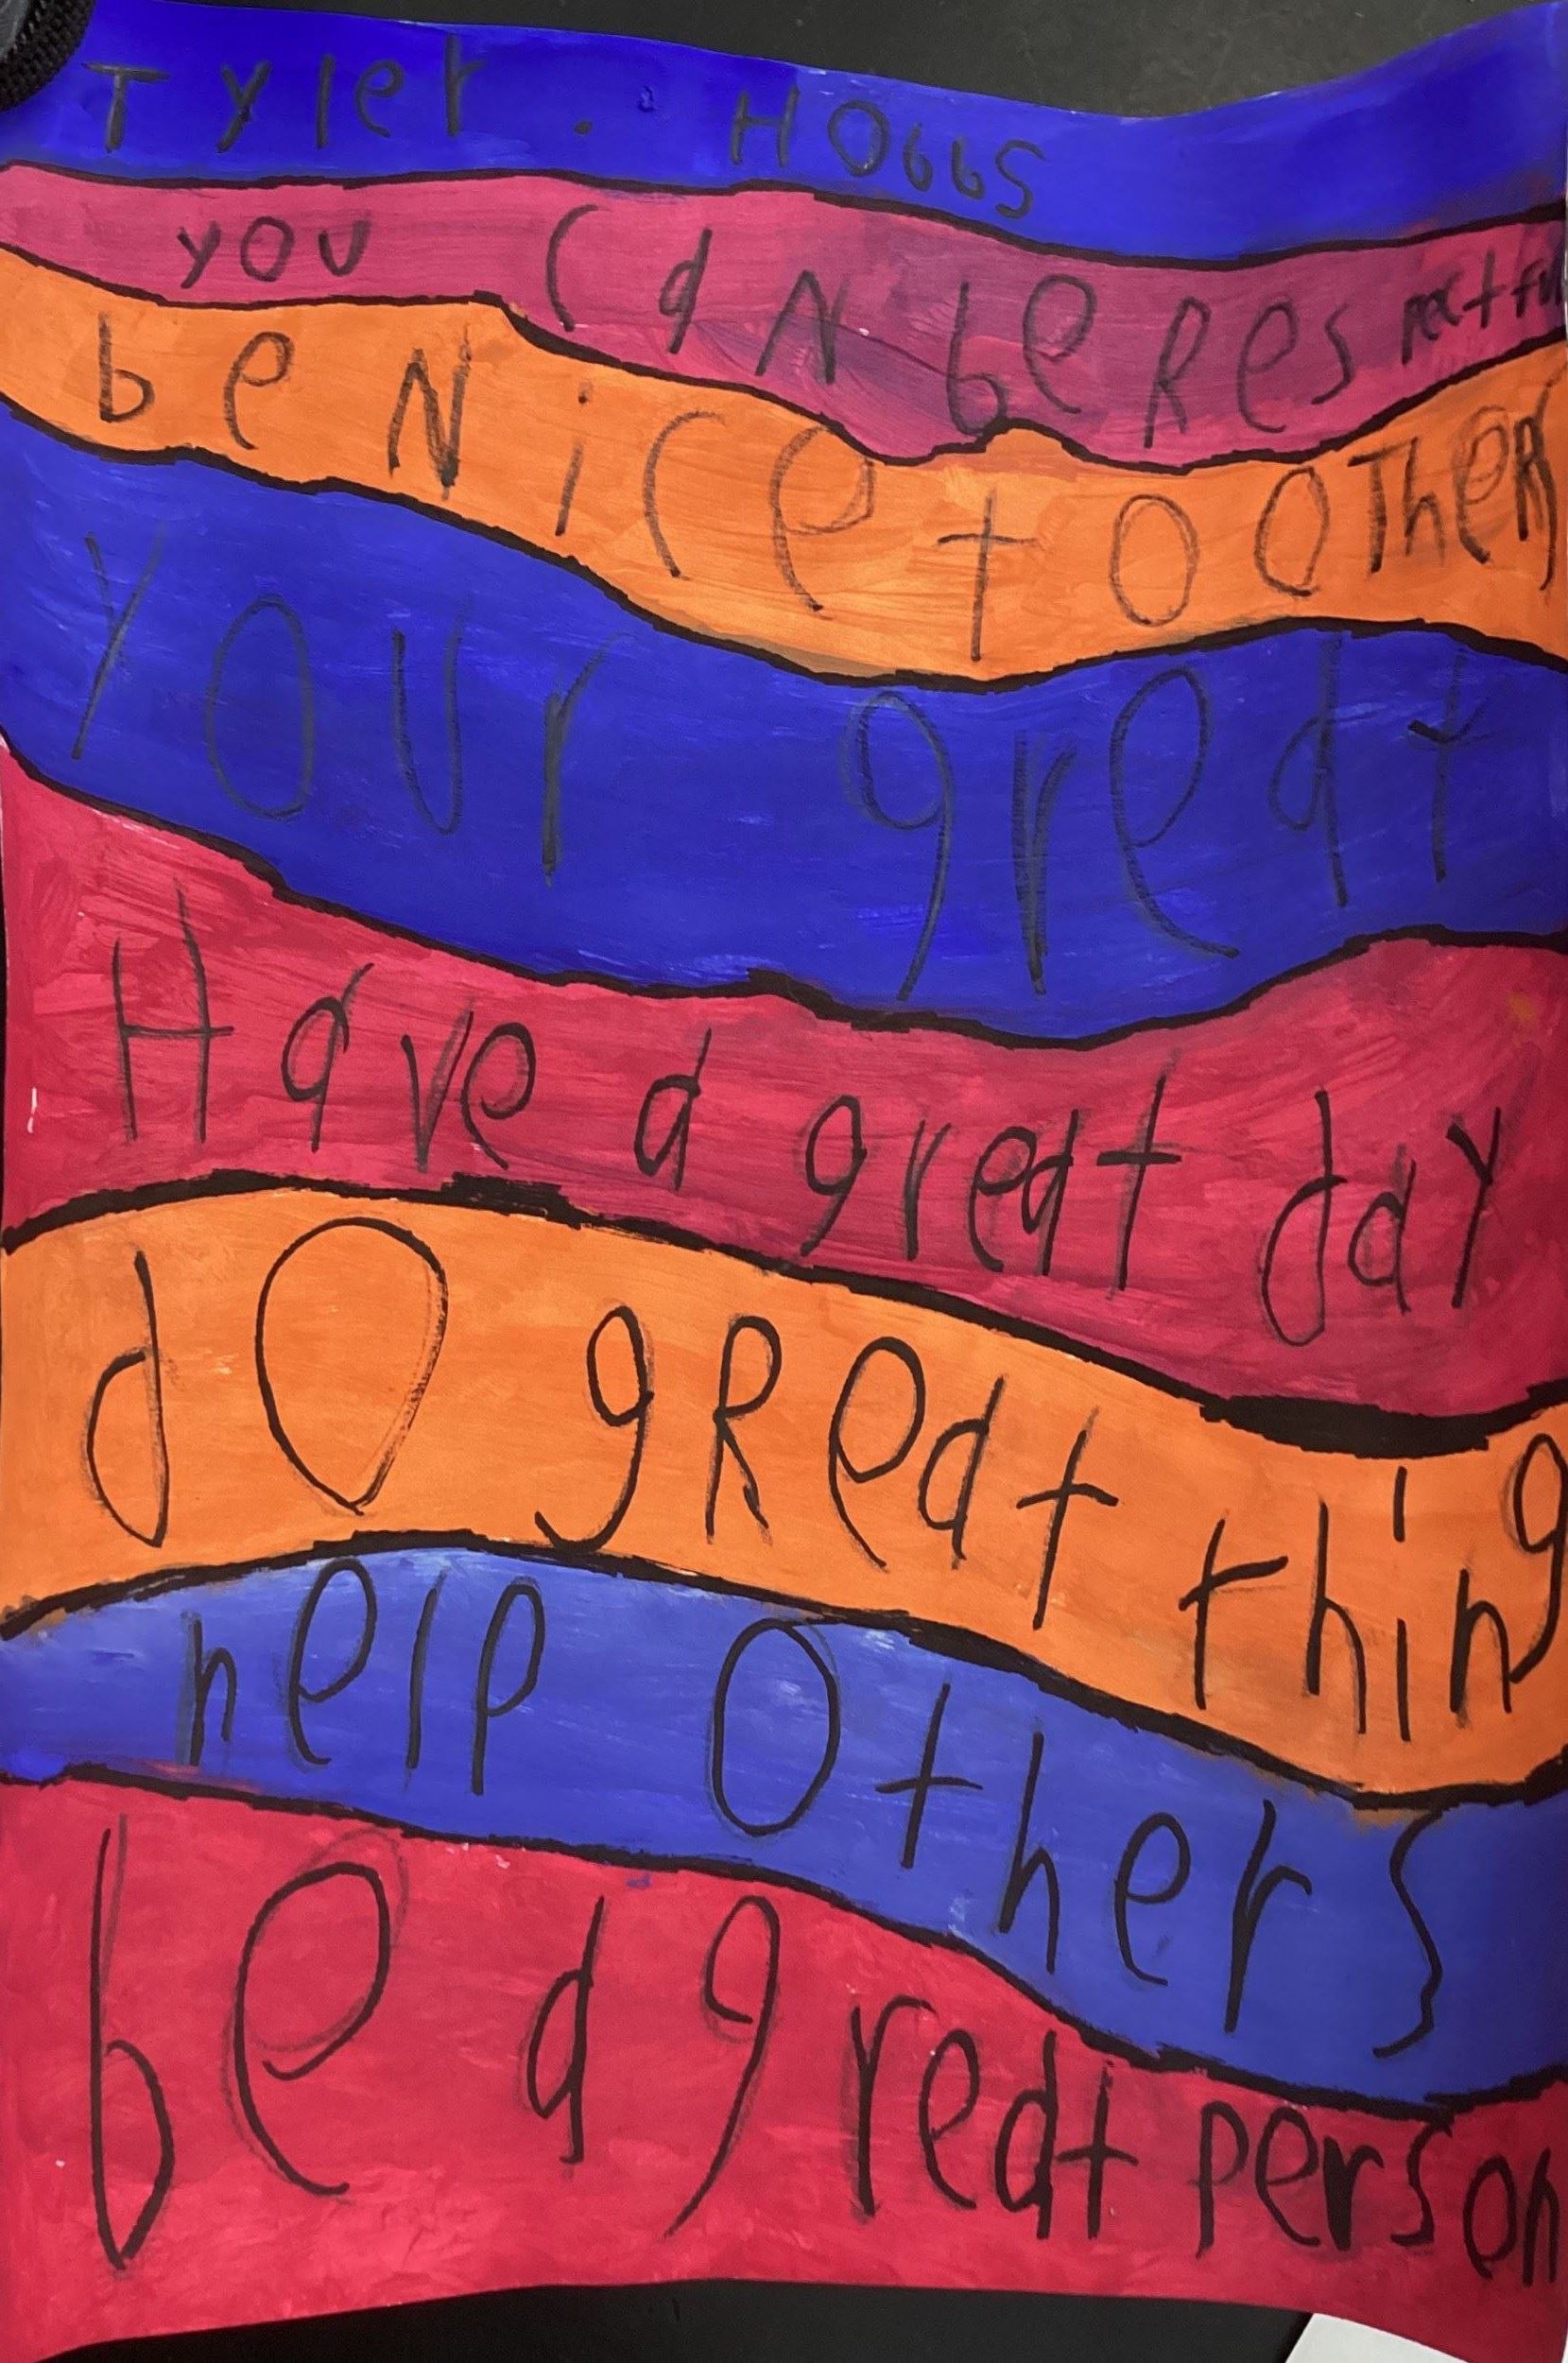 Tyler. HObbS
you CaN be Respectfu
be Nice to OTheR
Your great
Have a great day
dO gReat thing
help Others
be a great person